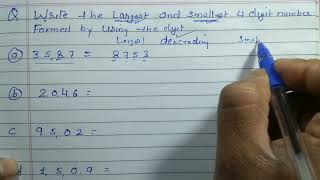 Q Write the Largest and Smallest 4 digit number
Formed by Using the digit
descending
(a) 3,5,8,7 = 8753
(b) 2,0,4,6 =
C 9,5,0,2 =
1,5,0,9 =